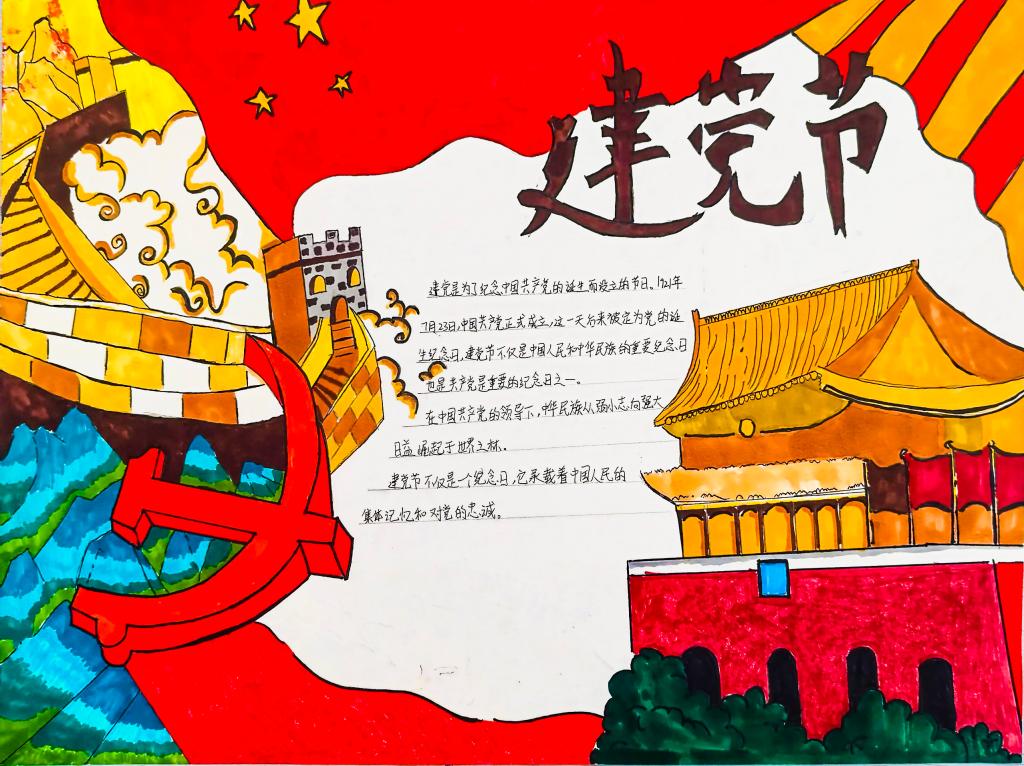 建党节
建党是为了纪念中国共产党的诞生而设立的节日。1921年
7月23日,中国共产党正式成立,这一天后来被定为党的诞
生纪念日,建党节不仅是中国人民和中华民族的重要纪念日
也是共产党是重要的纪念日之一。
在中国共产党的领导下,中华民族从弱小志向强大
日益崛起于世界之林。
建党节不仅是一个纪念日,它承载着中国人民的
集体记忆和对党的忠诚。